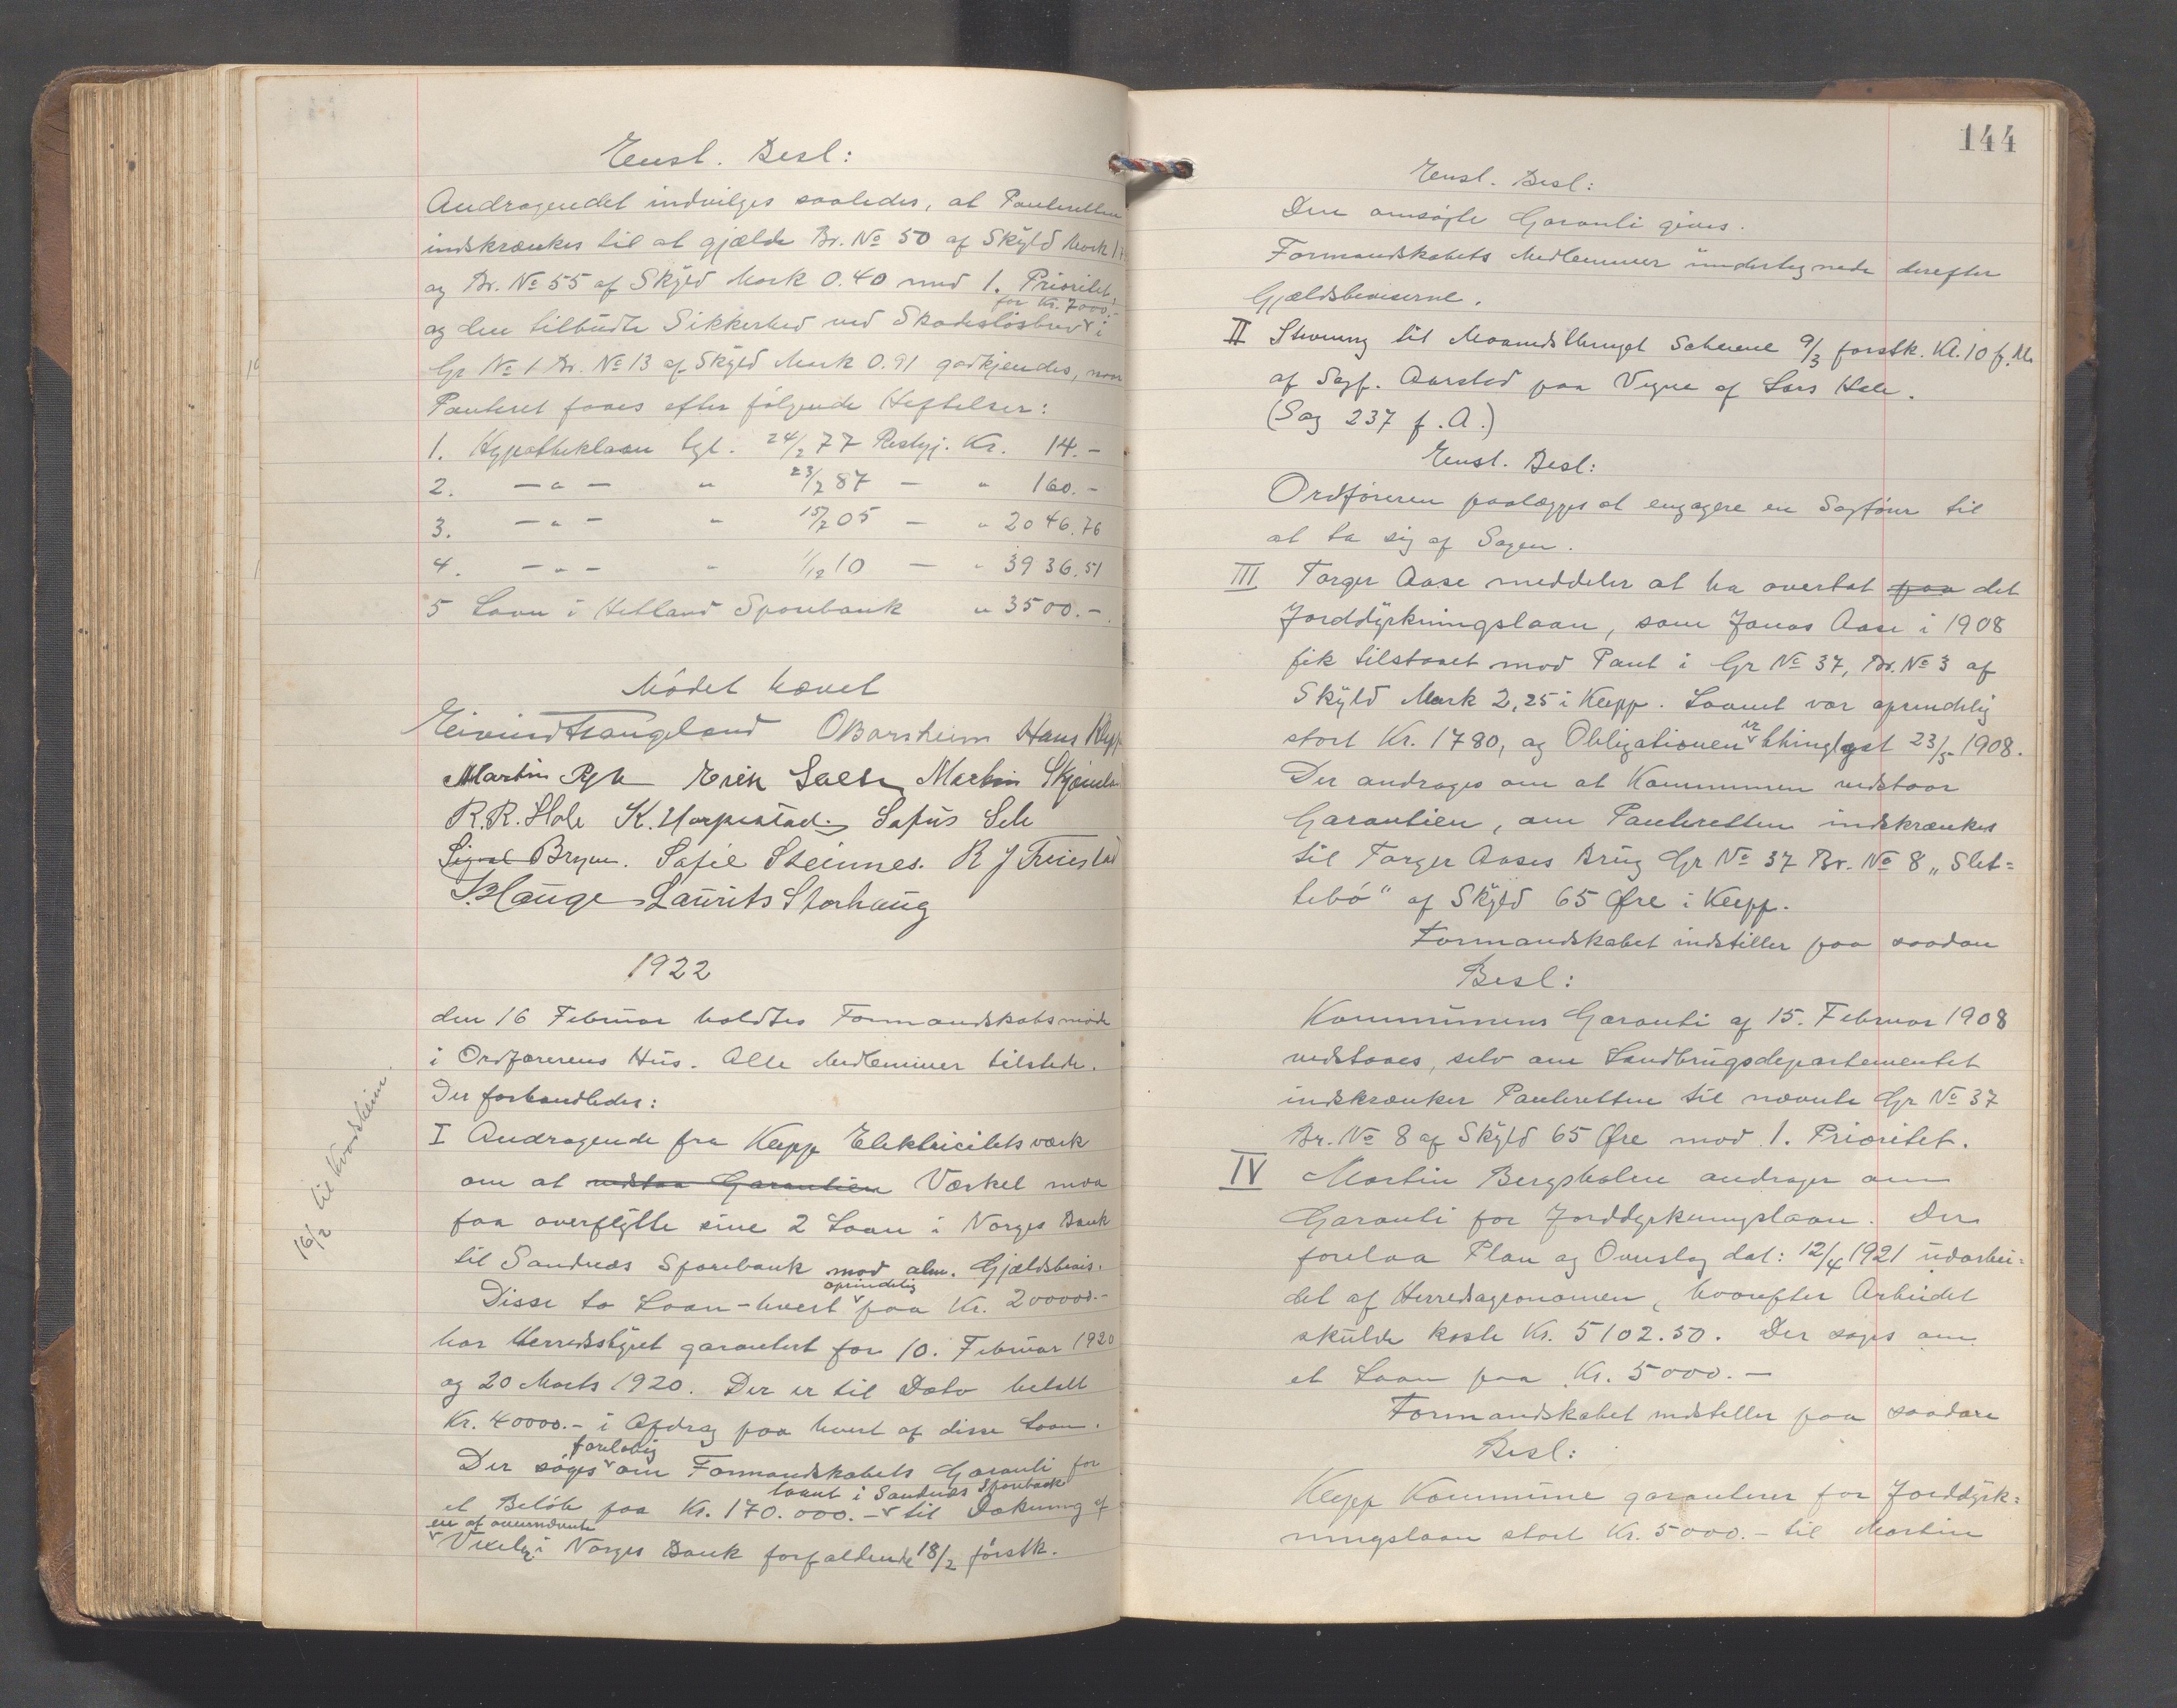 Enst. Besl:
Andragendet indvilges saaledes, at Panteretten
indskrænkes til at gjælde Br. No 50 af Skyld Mark
og Br. No 55 af Skyld Mark 0.40 mod 1. Prioritet,
for Kr. 7000.-
og den tilbudte Sikkerhed ved Skadesløsbrev i
Gr No 1 Br. No 13 af Skyld Mark 0.91 godkjendes, naar
Panteret faaes efter følgende Heftelser:
1. Hypotheklaan tgl. 24/2 77 Restgj. Kr. 14.-
2. -"- " 23/7 87 - " 160.-
3. -"- " 15/7 05 - " 2046.76
4. -"- " 1/12 10 - " 3936.51
5 Laan i Hetland Sparebank " 3500.-
Mødet hævet
Eivind Haugland O Borsheim Hans Klepp
Martin Erik Salte Martin
R.R. Hole K. Horpestad Sofus Sele
Sigval Bryne. Sofie Steinnes. R J Friestad
Hauge Laurits Storhaug
1922
den 16 Februar holdtes Formandskabsmøde
i Ordførerens Hus. Alle Medlemmer tilstede.
Der forhandledes:
16/2 til Kvordheim.
I Andragende fra Klepp Elektricitetsværk
om at vedstaa Garantien Værket maa
faa overflytte sine 2 Laan i Norges Bank
til Sandnes Sparebank mod alm. Gjældsbevis.
oprindelig
Disse to Laan - hvert paa Kr. 200000.-
har Herredsstyret garantert for 10. Februar 1920
og 20 Marts 1920. Der er til Dato betalt
Kr. 40000.- i Afdrag paa hvert af disse Laan.
foreløbig
Der søges om Formandskabets Garanti for
laant i Sandnes Sparebank
et Beløb paa Kr. 170.000.- til Dækning af
en af ovennævnte
Vexler i Norges Bank forfaldende 18/2 førstk.
144
Enst. Besl:
Den omsøgte Garanti gives.
Formandskabets Medlemmer undertegnede derefter
Gjældsbeviserne.
II Stevning til Maanedsthinget Scheene 9/3 førstk. Kl. 10 f. M.
af Sagf. Aarstad paa Vegne af Lars Hole.
(Sag 237 f. A.)
Enst. Besl:
Ordføreren paalægges at engagere en Sagfører til
at ta sig af Sagen.
III Torger Aase meddeler at ha overtat paa det
Jorddyrkningslaan, som Jonas Aase i 1908
fik tilstaaet mod Pant i Gr No 37, Br. No 3 af
Skyld Mark 2,25 i Klepp. Laanet var oprindelig
er
stort Kr. 1780, og Obligationen thinglyst 23/5 1908.
Der andrages om at Kommunen vedstaar
Garantien, om Panteretten indskrænkes
til Torger Aases Brug Gr No 37 Br. No 8 „Slet=
tebø“ af Skyld 65 Øre i Klepp.
Formandskabet indstiller paa saadan
Besl:
Kommunens Garanti af 15. Februar 1908
vedstaaes, selv om Landbrugsdepartementet
indskrænker Panteretten til nævnte Gr No 37
Br. No 8 af Skyld 65 Øre mod 1. Prioritet.
IV Martin Bergsholm andrager om
Garanti for Jorddyrkningslaan. Der
forelaa Plan og Overslag dat: 12/4 1921 udarbei=
det af Herredsagronomen, hvorefter Arbeidet
skulde koste Kr. 5102.50. Der søges om
et Laan paa Kr. 5000.-
Formandskabet indstiller paa saadan
Besl:
Klepp Kommune garanterer for Jorddyrk=
ningslaan stort Kr. 5000.- til Martin